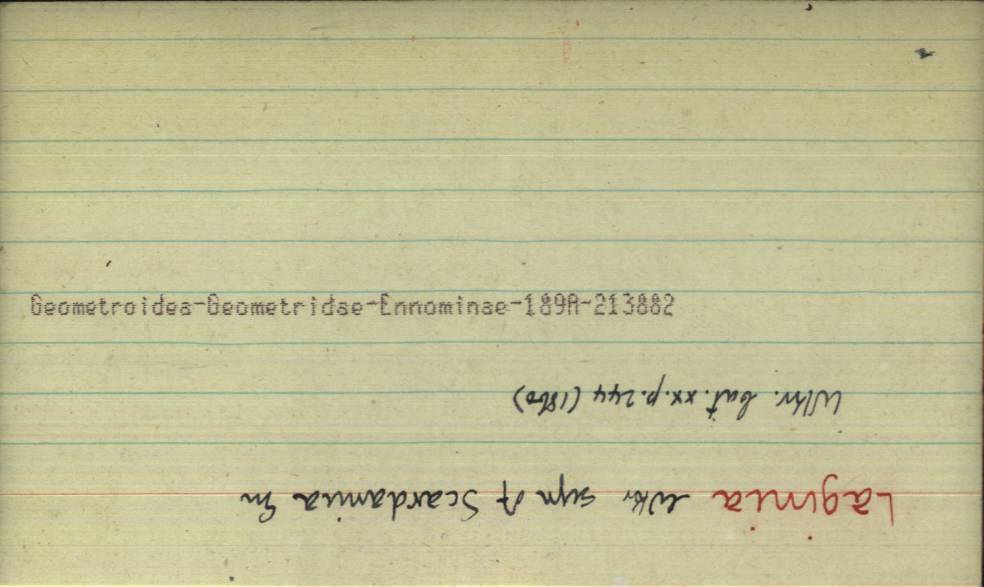 Geometroidea-Geometridae-Ennominae-189A-213882
Laginia Wlkr syn of Scardamia Gn
Wlkr. Cat. xx. p. 244 (1860)